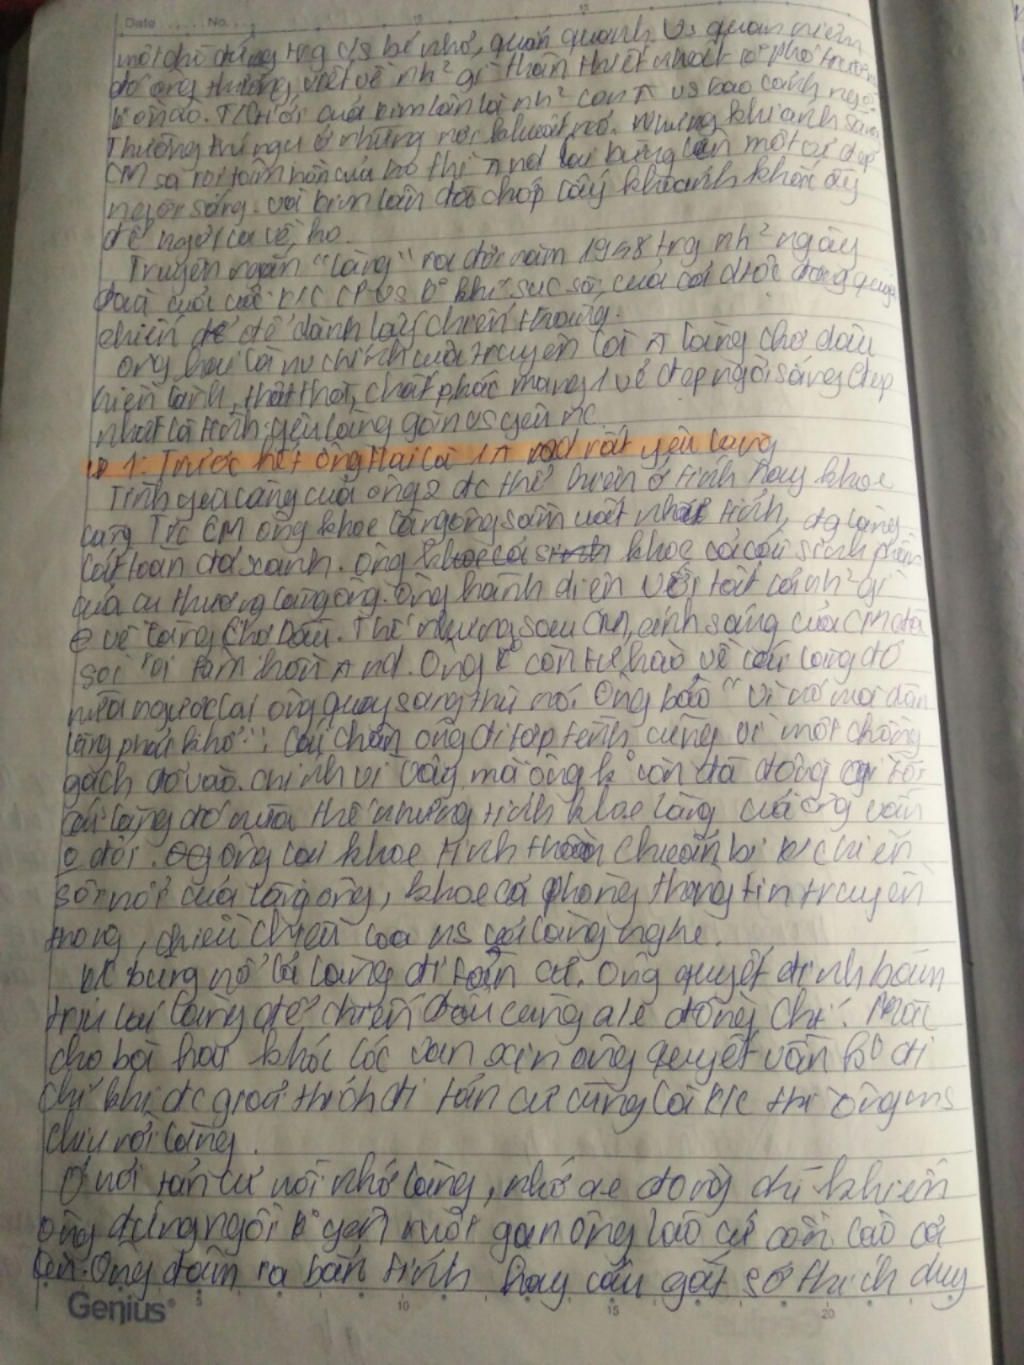 Date No.
một chỗ đứng trg c/s bé nhỏ, quẩn quanh. Vs quan niệm
đó ông thường viết về nh² gì thân thiết nhất
ồn ào. của Kim Lân là nh² con
Thường trú ngụ ở những nơi khuất nó. Nhưng khi ánh sáng
CM soi rọi tâm hồn của họ thì nd lại bừng lên một vẻ đẹp
ngời sáng. và Kim Lân đã chớp lấy khoảnh khắc ấy
để ngợi ca về họ.
Truyện ngắn "Làng" ra đời năm 1948 trg nh² ngày
đầu của cuộc k/c CP vs k° khí sục sôi của cả nước
chiến để dành lấy chiến thắng.
Ông Hai là nv chính của truyện là làng chợ dầu
hiền lành, thật thà, chất phác mang 1 vẻ đẹp ngời sáng đẹp
nhất là tình yêu làng gắn vs yêu nc
1: Trước hết ông Hai là 1 nd rất yêu làng
Tình yêu làng của ông 2 đc thể hiện ở tính hay khoe
làng Trc CM ông khoe làng ông sầm uất nhất tỉnh, đg làng
lát toàn đá xanh. Ông khoe cả cái sinh phần
của cụ thượng làng ông. Ông hãnh diện với tất cả nh² gì
ở về làng Chợ Dầu. Thế nhưng sau CM, ánh sáng của CM đã
soi rọi tâm hồn nd. Ông k° còn tự hào về cái lăng đó
nữa ngược lại ông quay sang thù nó. Ông bảo "vì nó mà dân
làng phải khổ". Cái chân ông đi tập tễnh cũng vì một chồng
gạch đổ vào. chính vì vậy mà ông k° còn
cái lăng đó nữa thế nhưng tính khoe làng của ông vẫn
o đổi. ông lại khoe tinh thần chuẩn bị k/chiến
sôi nổi của làng ông, khoe cả phòng thông tin truyền
thông, chiều chiều loa ns cả làng nghe.
bùng nổ cả làng đi tản cư. Ông quyết định bám
trụ lại làng để chiến đấu cùng a/e đồng chí. Mặc
cho bà hai khóc lóc van xin ông quyết vẫn k° đi
chỉ khi đc giải thích đi tản cư cũng là k/c thì ông ms
chịu rời làng.
Ở nơi tản cư nỗi nhớ làng, nhớ ae đồng chí khiến
ông đứng ngồi k° yên ruột gan ông lão cứ cồn cào cả
lên. Ông đâm ra bản tính hay cáu gắt sở thích duy
Genius
5 10 15 20